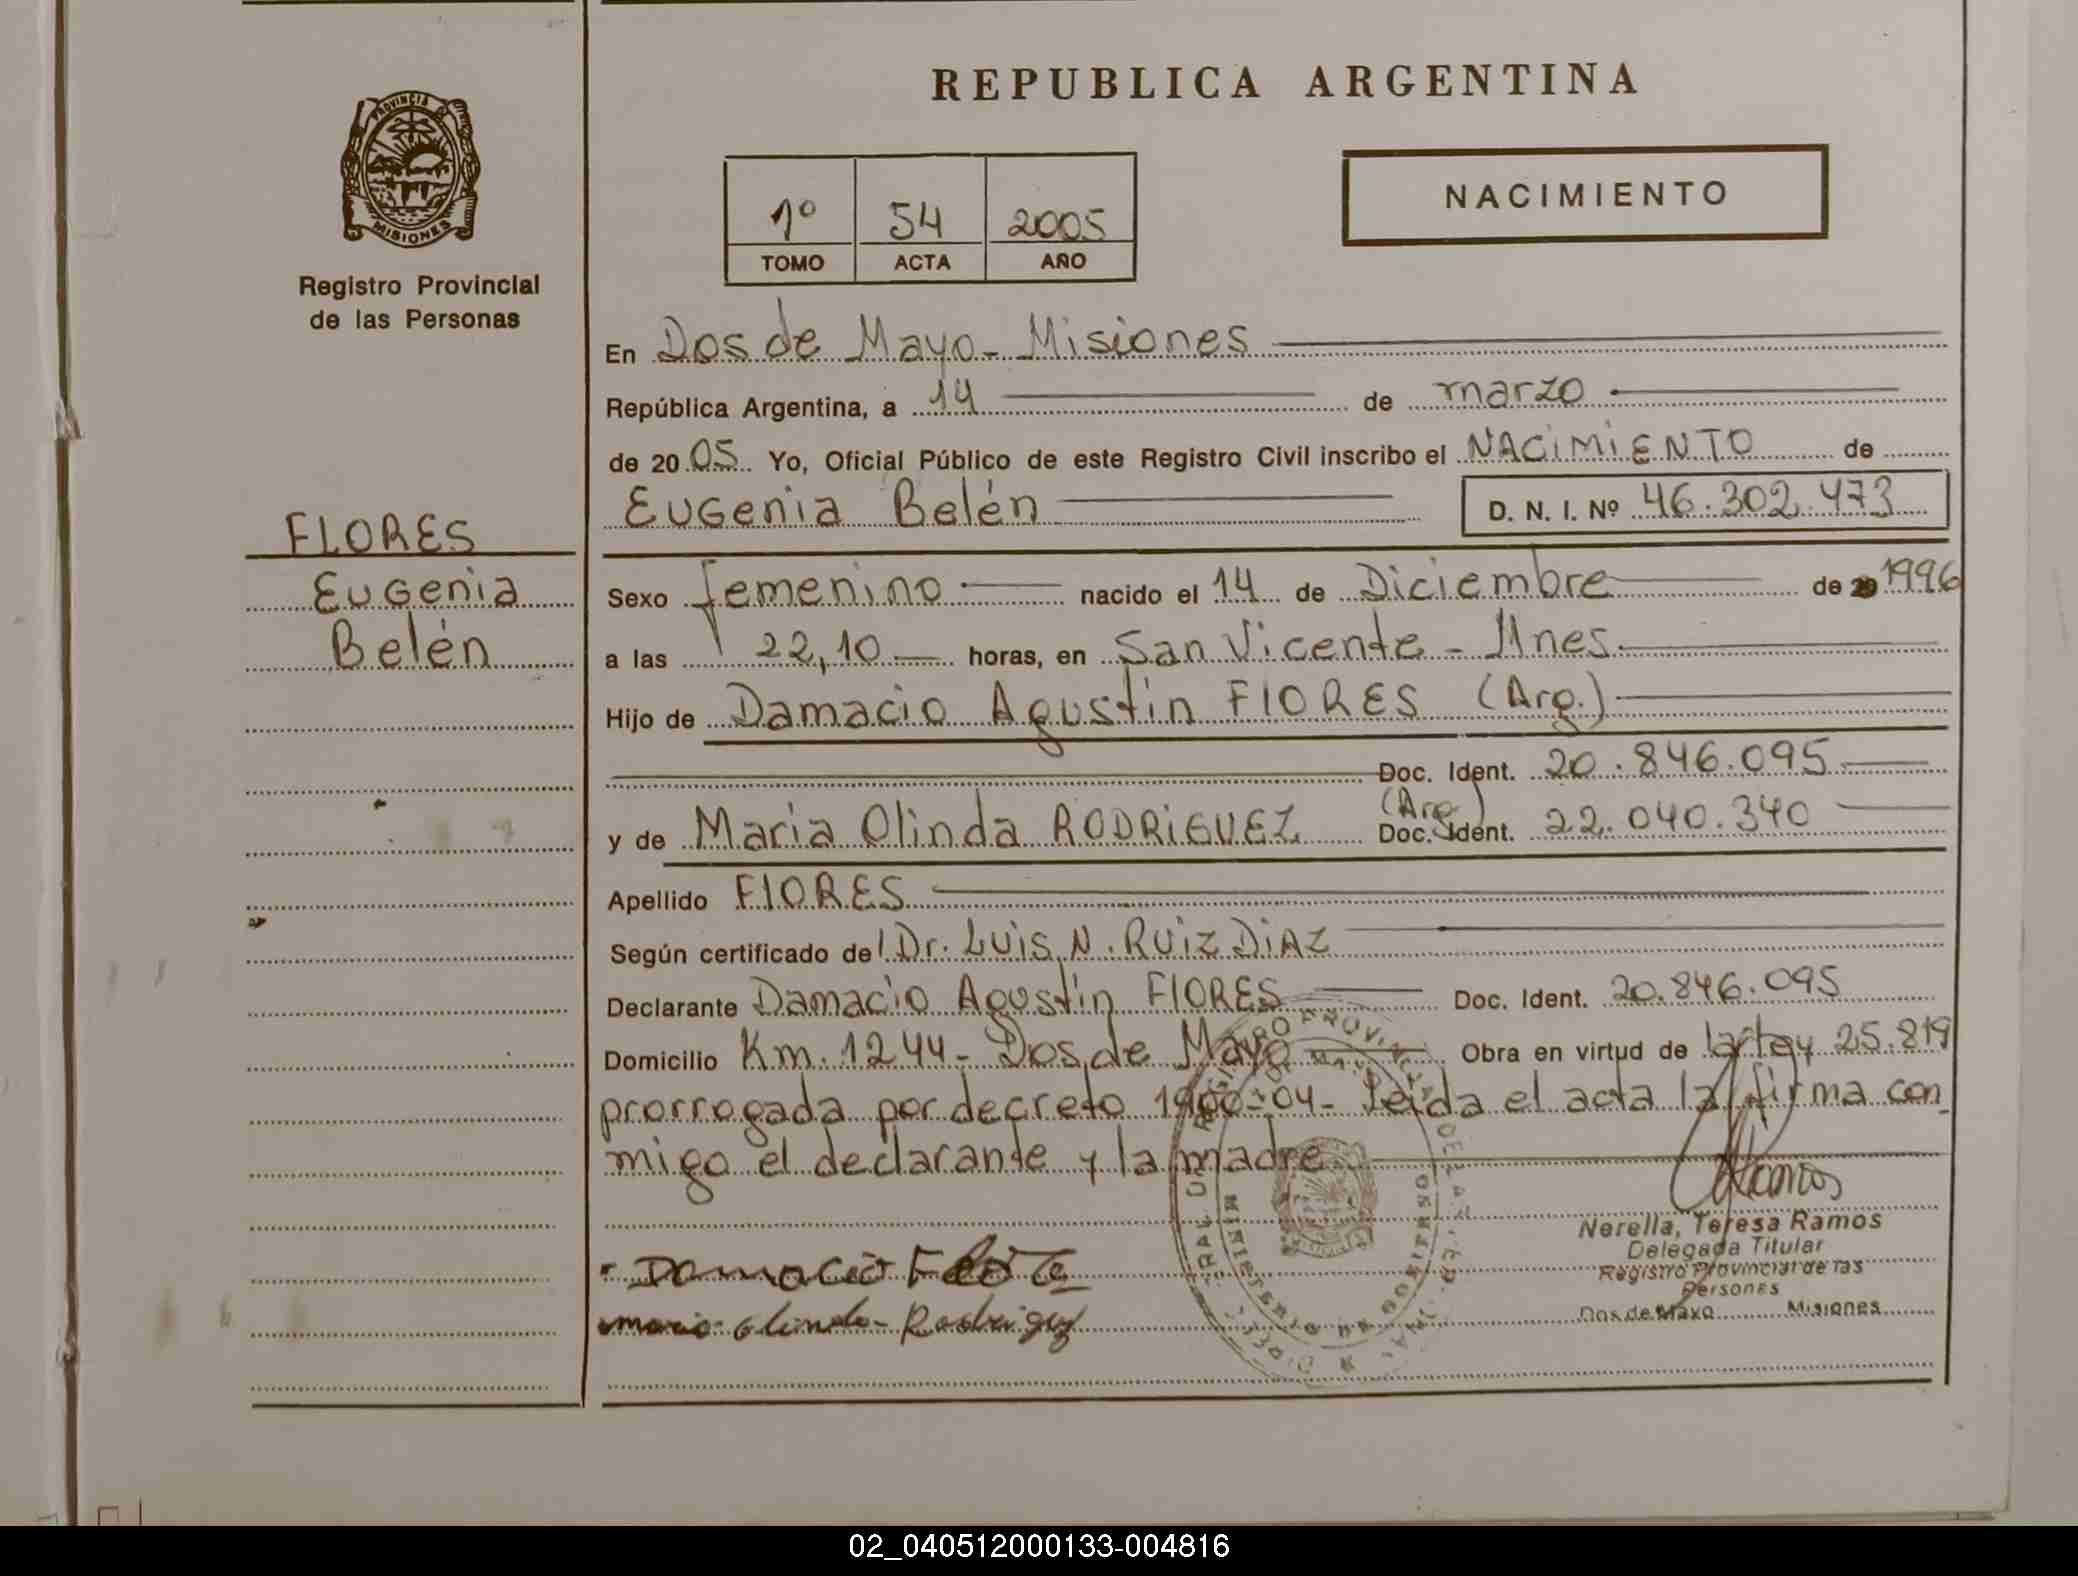 REPUBLICA ARGENTINA
PROVINCIA
MISIONES
Registro Provincial
de las Personas
1º 54 2005
TOMO ACTA AÑO
NACIMIENTO
En Dos de Mayo - Misiones
República Argentina, a 14 de marzo
de 2005 Yo, Oficial Público de este Registro Civil inscribo el NACIMIENTO de
Eugenia Belén D. N. I. Nº 46.302.473
FLORES
Eugenia
Belén
Sexo femenino nacido el 14 de Diciembre de 1996
a las 22,10 horas, en San Vicente - Mnes
Hijo de Damacio Agustín FlORES (Arg.)
Doc. Ident. 20.846.095
(Arg)
y de Maria Olinda RODRIGUEZ Doc. Ident. 22.040.340
Apellido FlORES
Según certificado de Dr. Luis N. Ruiz DiAZ
Declarante Damacio Agustín FlORES Doc. Ident. 20.846.095
Domicilio Km. 1244 - Dos de Mayo Obra en virtud de la ley 25.819
prorrogada por decreto 1900-04 - Leída el acta la firma con
migo el declarante y la madre
Nerella, Teresa Ramos
Delegada Titular
Registro Provincial de las
Personas
Dos de Mayo Misiones
Damacio Flore
maria olinda - Rodriguez
02_040512000133-004816